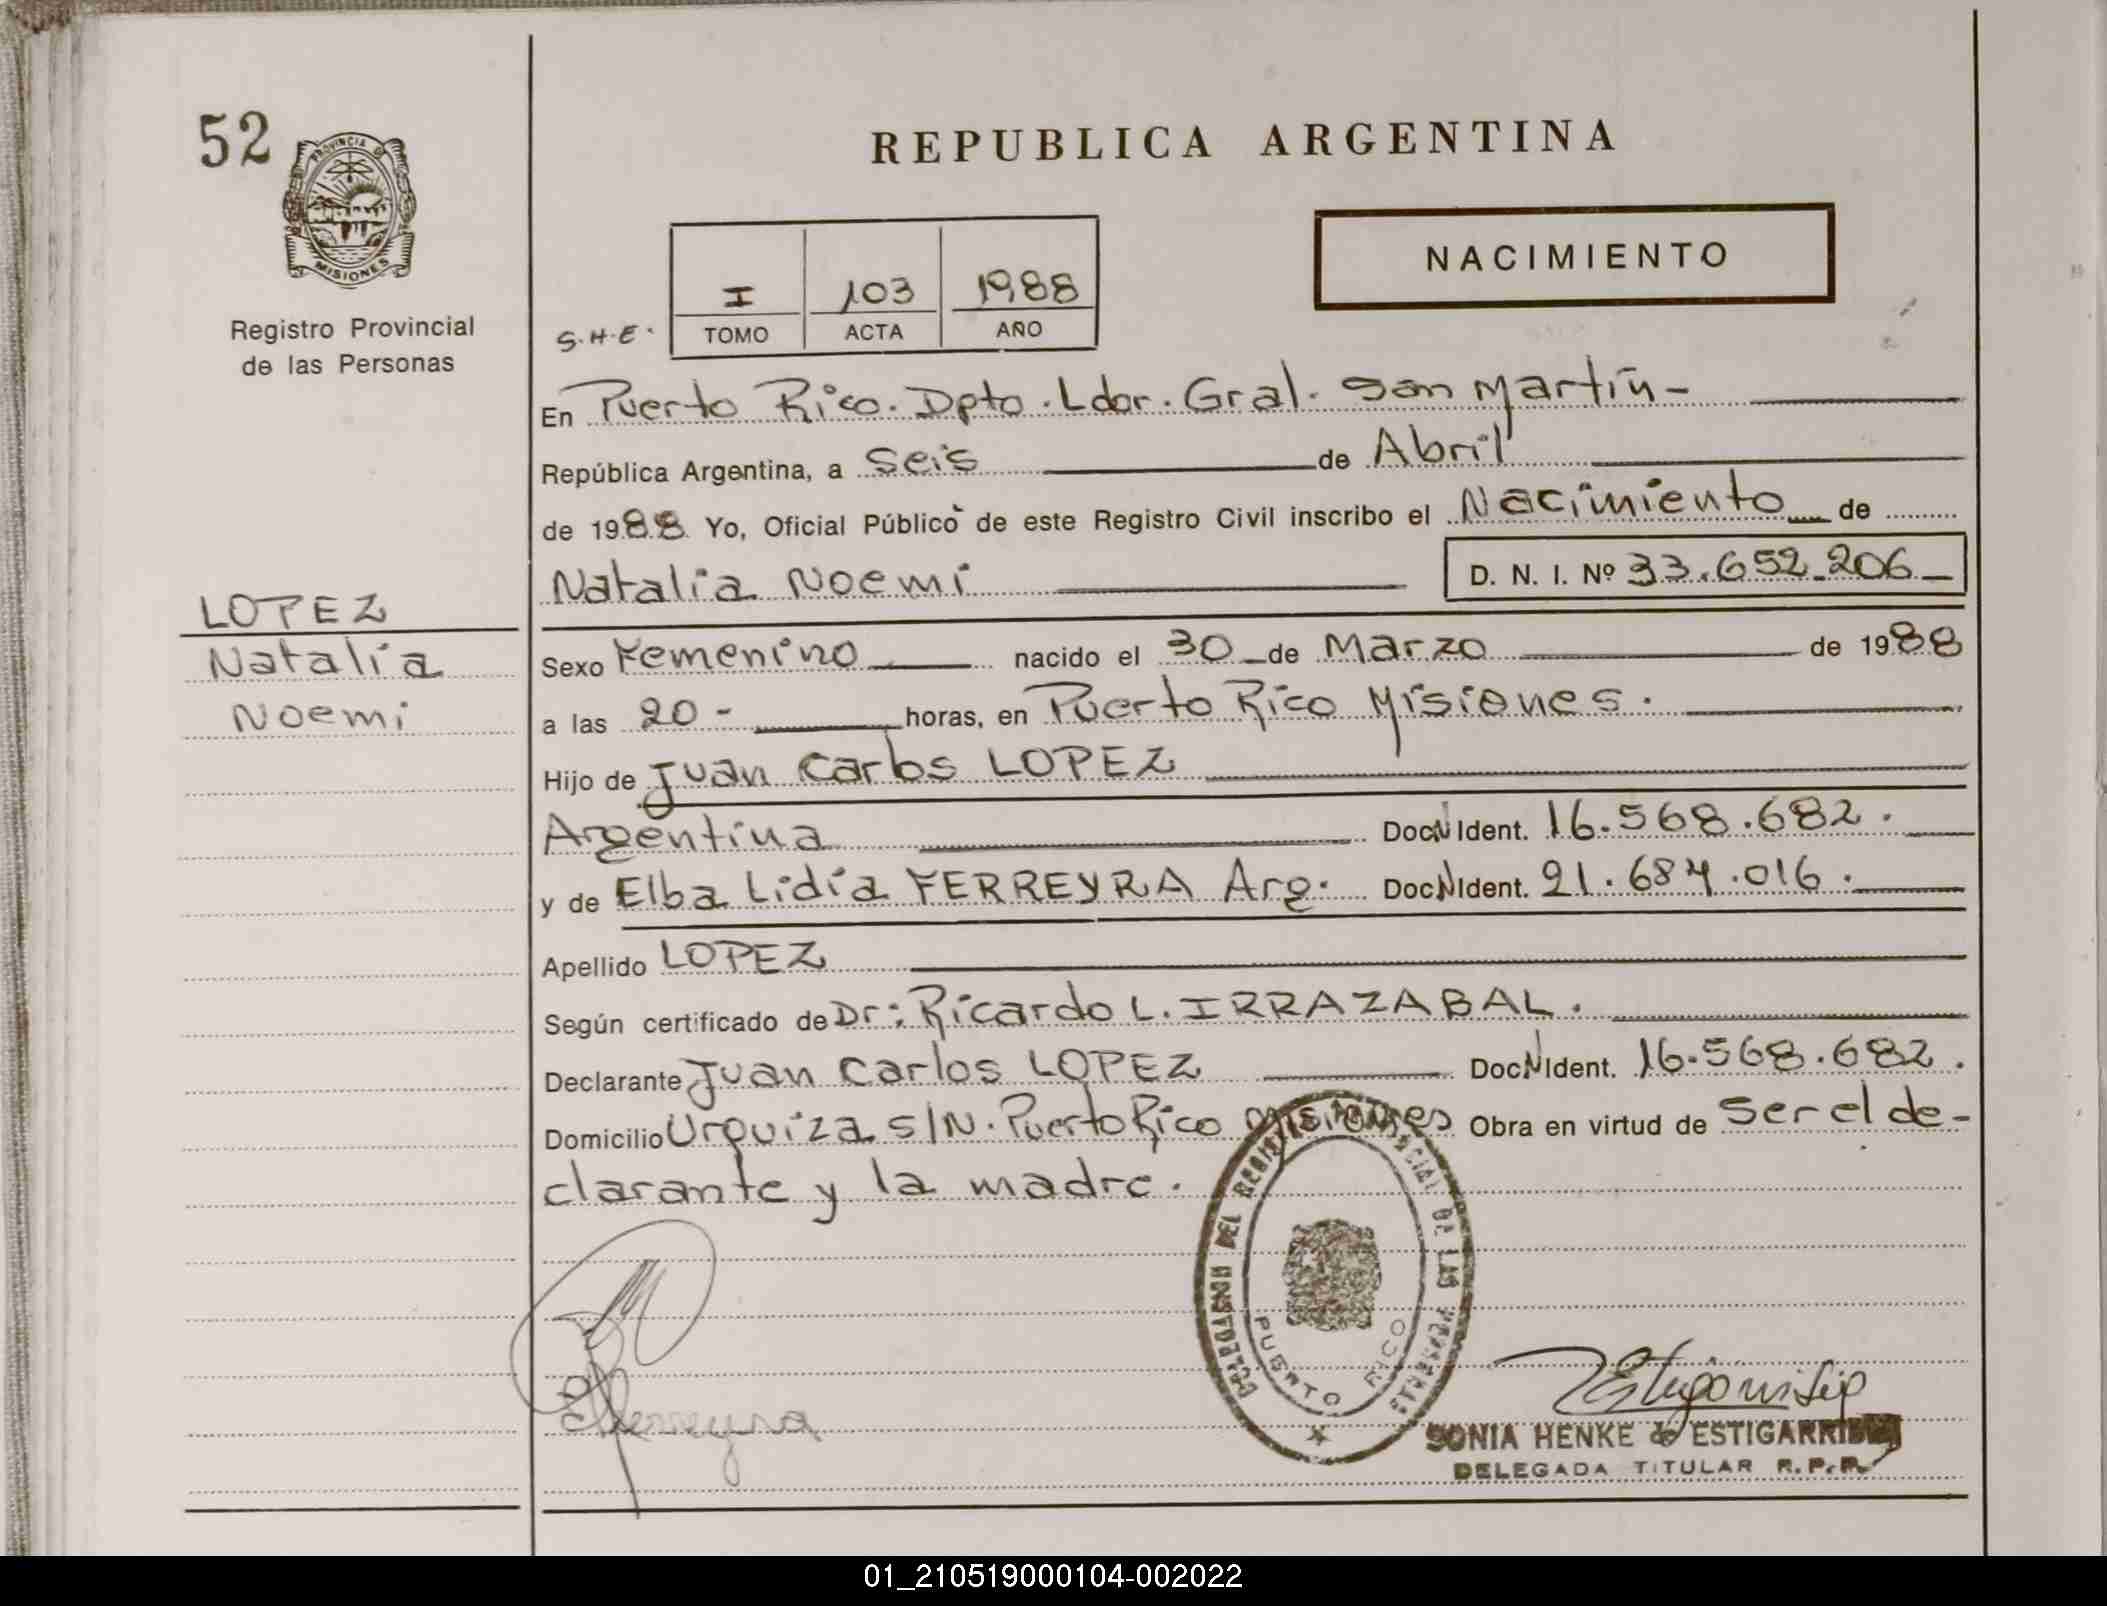 52
PROVINCIA DE
MISIONES
Registro Provincial
de las Personas
REPUBLICA ARGENTINA
NACIMIENTO
I 103 1988
S.H.E. TOMO ACTA AÑO
En Puerto Rico. Dpto. Ldor. Gral. San Martín-
República Argentina, a seis de Abril
de 1988 Yo, Oficial Público de este Registro Civil inscribo el Nacimiento de
Natalia Noemi D. N. I. Nº 33.652.206
LOPEZ
Natalia
Noemi
Sexo Femenino nacido el 30 de Marzo de 1988
a las 20 - horas, en Puerto Rico Misiones.
Hijo de Juan Carlos LOPEZ
Argentina Doc. N Ident. 16.568.682.
y de Elba Lidia FERREYRA Arg. Doc. N Ident. 21.684.016.
Apellido LOPEZ
Según certificado de Dr: Ricardo L. IRRAZABAL.
Declarante Juan Carlos LOPEZ Doc. N Ident. 16.568.682.
Domicilio Urquiza s/N. Puerto Rico Misiones Obra en virtud de Ser el de-
clarante y la madre.
DEL LAS
PUERTO RICO
Ferreyra
SONIA HENKE de ESTIGARRIBIA
DELEGADA TITULAR R.P.P.
01_210519000104-002022